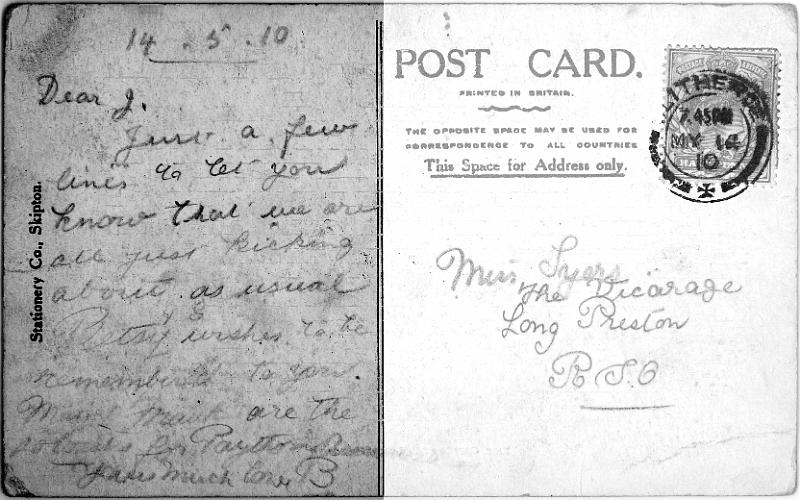 14.5.10
Dear J.
Just a few
lines to let you
know that we are
all just kicking
about as usual
Betsy wishes to be
remembered to you.
are the
for
Yours much love B
Stationery Co., Skipton.
POST CARD.
PRINTED IN BRITAIN.
THE OPPOSITE SPACE MAY BE USED FOR
CORRESPONDENCE TO ALL COUNTRIES
This Space for Address only.
7.45PM
MY 14
10
Miss Syers
The Vicarage
Long Preston
R S O